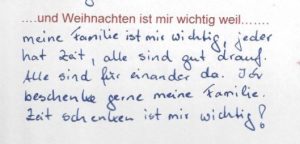 ....und Weihnachten ist mir wichtig weil.......
meine Familie ist mir wichtig, jeder
hat Zeit, alle sind gut drauf.
Alle sind für einander da. Ich
beschenke gerne meine Familie.
Zeit schenken ist mir wichtig!